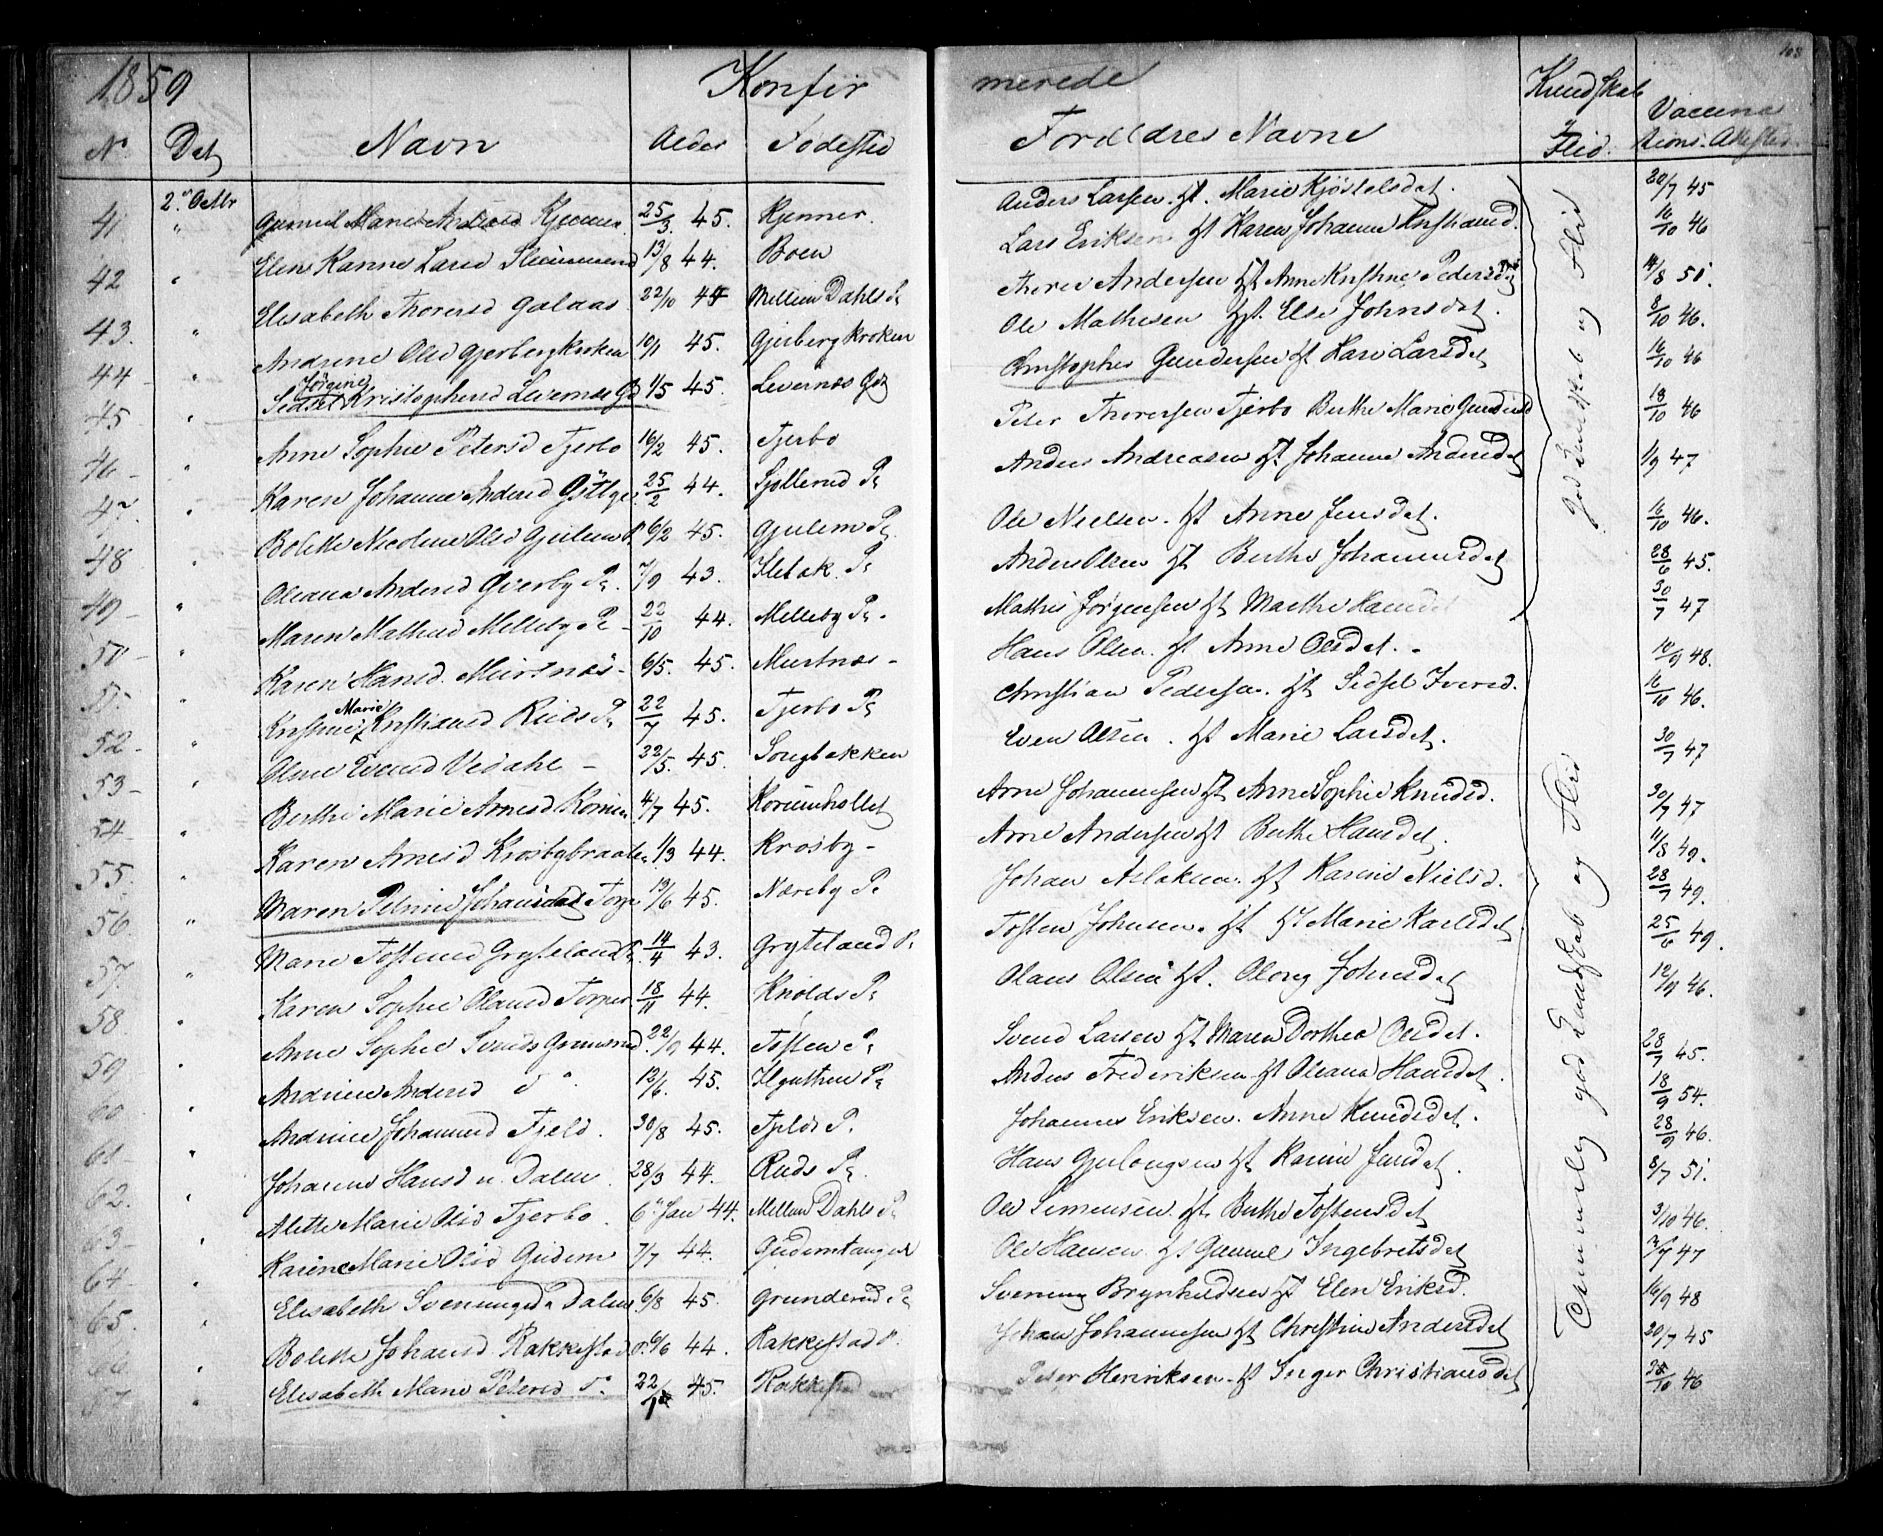 1859 Konfirmerede 108
N. Dat. Navn Alder Fødested Forældres Navne Kundskab & Flid. Vaccinations-Attested.
41. 2. Octbr Gunnil Marie 25/3 45. Kjenner. Anders Larsen. Hst. Marie Kjøstelsdat. 20/7 45
42 " Elen Karine Larsd 13/8 44. Boen Lars Eriksen Hst Karen Johanne 16/10 46
43. " Elisabeth Thoresd Galaas 22/10 44 Mellem Dahls P. Thore Andersen Hst Anne Kristine Pedersd. 14/8 51.
44 " Andrine Olsd Gjerbergkroken 10/1 45. Gjerbergkroken Ole Mathesen Hst. Else Johnsdat. 8/10 46.
45 " Sidsel Jørgine Kristophersd Levernæs 1/5 45. Levernæs Christopher Gundersen Hst Kari Larsdat 16/10 46
46 " Anne Sophie Petersd Tjerbo 16/2 45. Tjerbo Peter Thoresen Tjerbo Berthe Marie 18/10 46
47. " Karen Johanne Andersd 25/2 44. Anders Andreasen Hst Johanne Andersdat 1/9 47
48 " Bolette Nicoline Olsd 6/2 45. Gjulem P. Ole Nielsen. Hst Anne Jensdat. 16/10 46.
49 " Oleana Andersd Overby P. 7/9 43. Anders Olsen Hst Berthe Johannesdat 28/6 45.
50 " Maren Mathisd Melleby P. 22/10 44. Melleby P. Mathis Jørgensen Hst Marthe Hansdat 30/7 47
51. " Karen Hansd. 6/5. 45. Hans Olsen. Hst Anne Olsdat. 10/9 48.
52 " Kristine Marie Kristiansd Ruds P. 22/7 45. Tjerbo P. Christian Pedersen. Hst Sidsel Iversd. 16/10 46.
53 " Oline Evensd Vedahl 22/5. 45. Songbakken Even Olsen. Hst Marie Larsdat. 30/7 47
54 " Berthe Marie Arnesd 4/7 45. Arne Johannesen Hst Anne Sophie Knudsd. 30/7 47
55. " Karen Arnesd Krosbybraaten 1/3 44. Krosby Arne Andersen Hst Berthe Hansdat. 11/8 49.
56 " Maren Johansdat 13/6 45. Næreby P. Johan Aslaksen. Hst Karine Nielsd. 28/7 49.
57. " Marie Tostensd Gryteland P. 14/4 43. Gryteland P. Tosten Johnsen. Hst Marie Karlsdat 25/6 49.
58 " Karen Sophie Olausd 18/11 44. Knolds P. Olaus Olsen Hst. Olong Johnsdat 12/9 46.
59 " Anne Sophie Svends 22/9 44. Tosten P. Svend Larsen Hst Maren Dorthea Olsdat. 28/7 45.
60 " Andrine Andersd 12/6. 45. Anders Frederiksen Hst Oleana Hansdat. 18/9 54.
61 " Andrine Johannesd Fjeld. 30/8 45. Fjelds P. Johannes Eriksen. Anne Knudsdat. 28/9 46.
62. " Johanne Hansd n. Dalen 28/3 44. Ruds P. Hans Gjulongsen Hst Karine Jensdat. 8/7 51.
63 " Alette Marie Olsd Tjerbo. 6. Jan 44. Mellem Dahls P. Ole Simensen Hst. Berthe Tostensdat 3/10 46.
64 " Karine Marie Olsd Gudem 7/7 44. Gudemtangen Ole Hansen Hst Gunnil Ingebretsdat 7/7 47
65. " Elisabeth Sveningsd n Dalen 6/8 45. Grunderud P. Svening Brynhildsen Hst Elen Eriksd. 16/9 48
66 " Bolette Johansd. Rakkestad 6/6 44. Rakkestad P. Johan Johannesen Hst Christine Andersdat 20/7 45
67 Elisabeth Marie Petersd Do 22/1 45. Rakkestad Peter Henriksen Hst Inger Christiansdat 46
God Kundskab og Flid
Temmelig god Kundskab og Flid